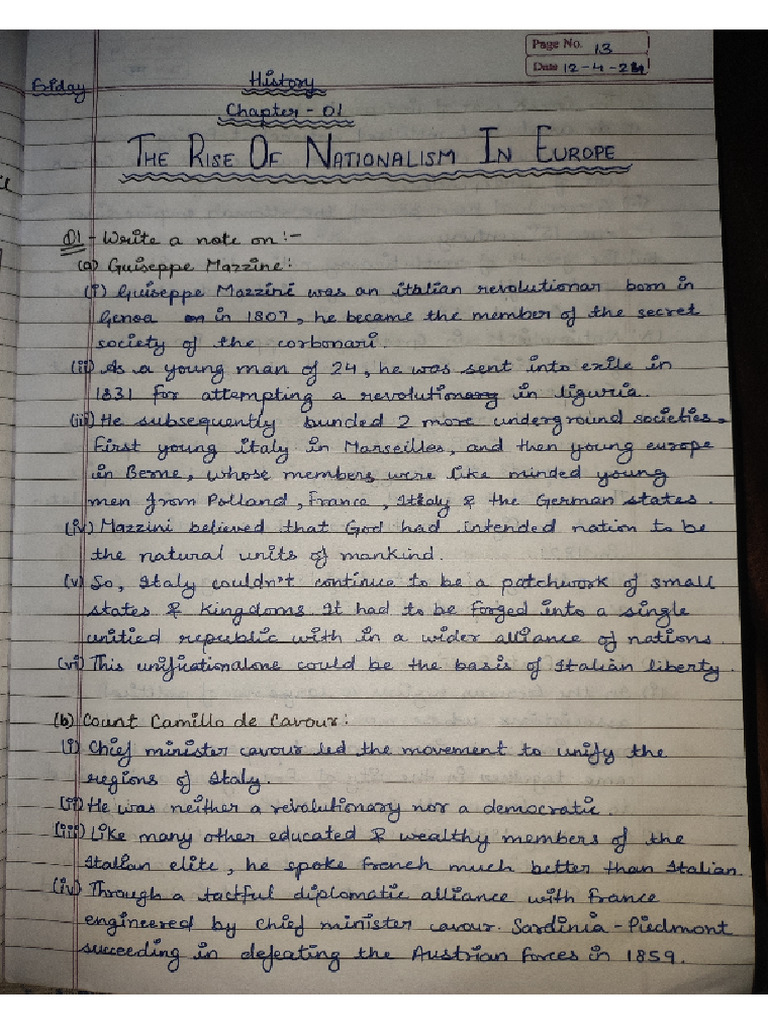 Page No. 13
Date 12-4-24
Friday
History
Chapter - 01
THE RISE OF NATIONALISM IN EUROPE
Q1 - Write a note on :-
(a) Guiseppe Mazzine:
(i) Guiseppe Mazzini was an italian revolutionar born in
Genoa in 1807, he became the member of the secret
society of the carbonari.
(ii) As a young man of 24, he was sent into exile in
1831 for attempting a revolutionary in liguria.
(iii) He subsequently bunded 2 more underground societies.
First young italy in Marseilles, and then young europe
in Berne, whose members were like minded young
men from Polland, France, Italy & the German states.
(iv) Mazzini believed that God had intended nation to be
the natural units of mankind.
(v) So, Italy couldn't continue to be a patchwork of small
states & Kingdoms. It had to be forged into a single
unitied republic with in a wider alliance of nations
(vi) This unificationalone could be the basis of Italian liberty.
(b) Count Camillo de Cavour:
(i) Chief minister cavour led the movement to unify the
regions of Italy.
(ii) He was neither a revolutionary nor a democratic.
(iii) Like many other educated & wealthy members of the
Italian elite, he spoke French much better than Italian.
(iv) Through a tactful diplomatic alliance with France
engineered by chief minister cavour. Sardinia-Piedmont
succeeding in defeating the Austrian forces in 1859.